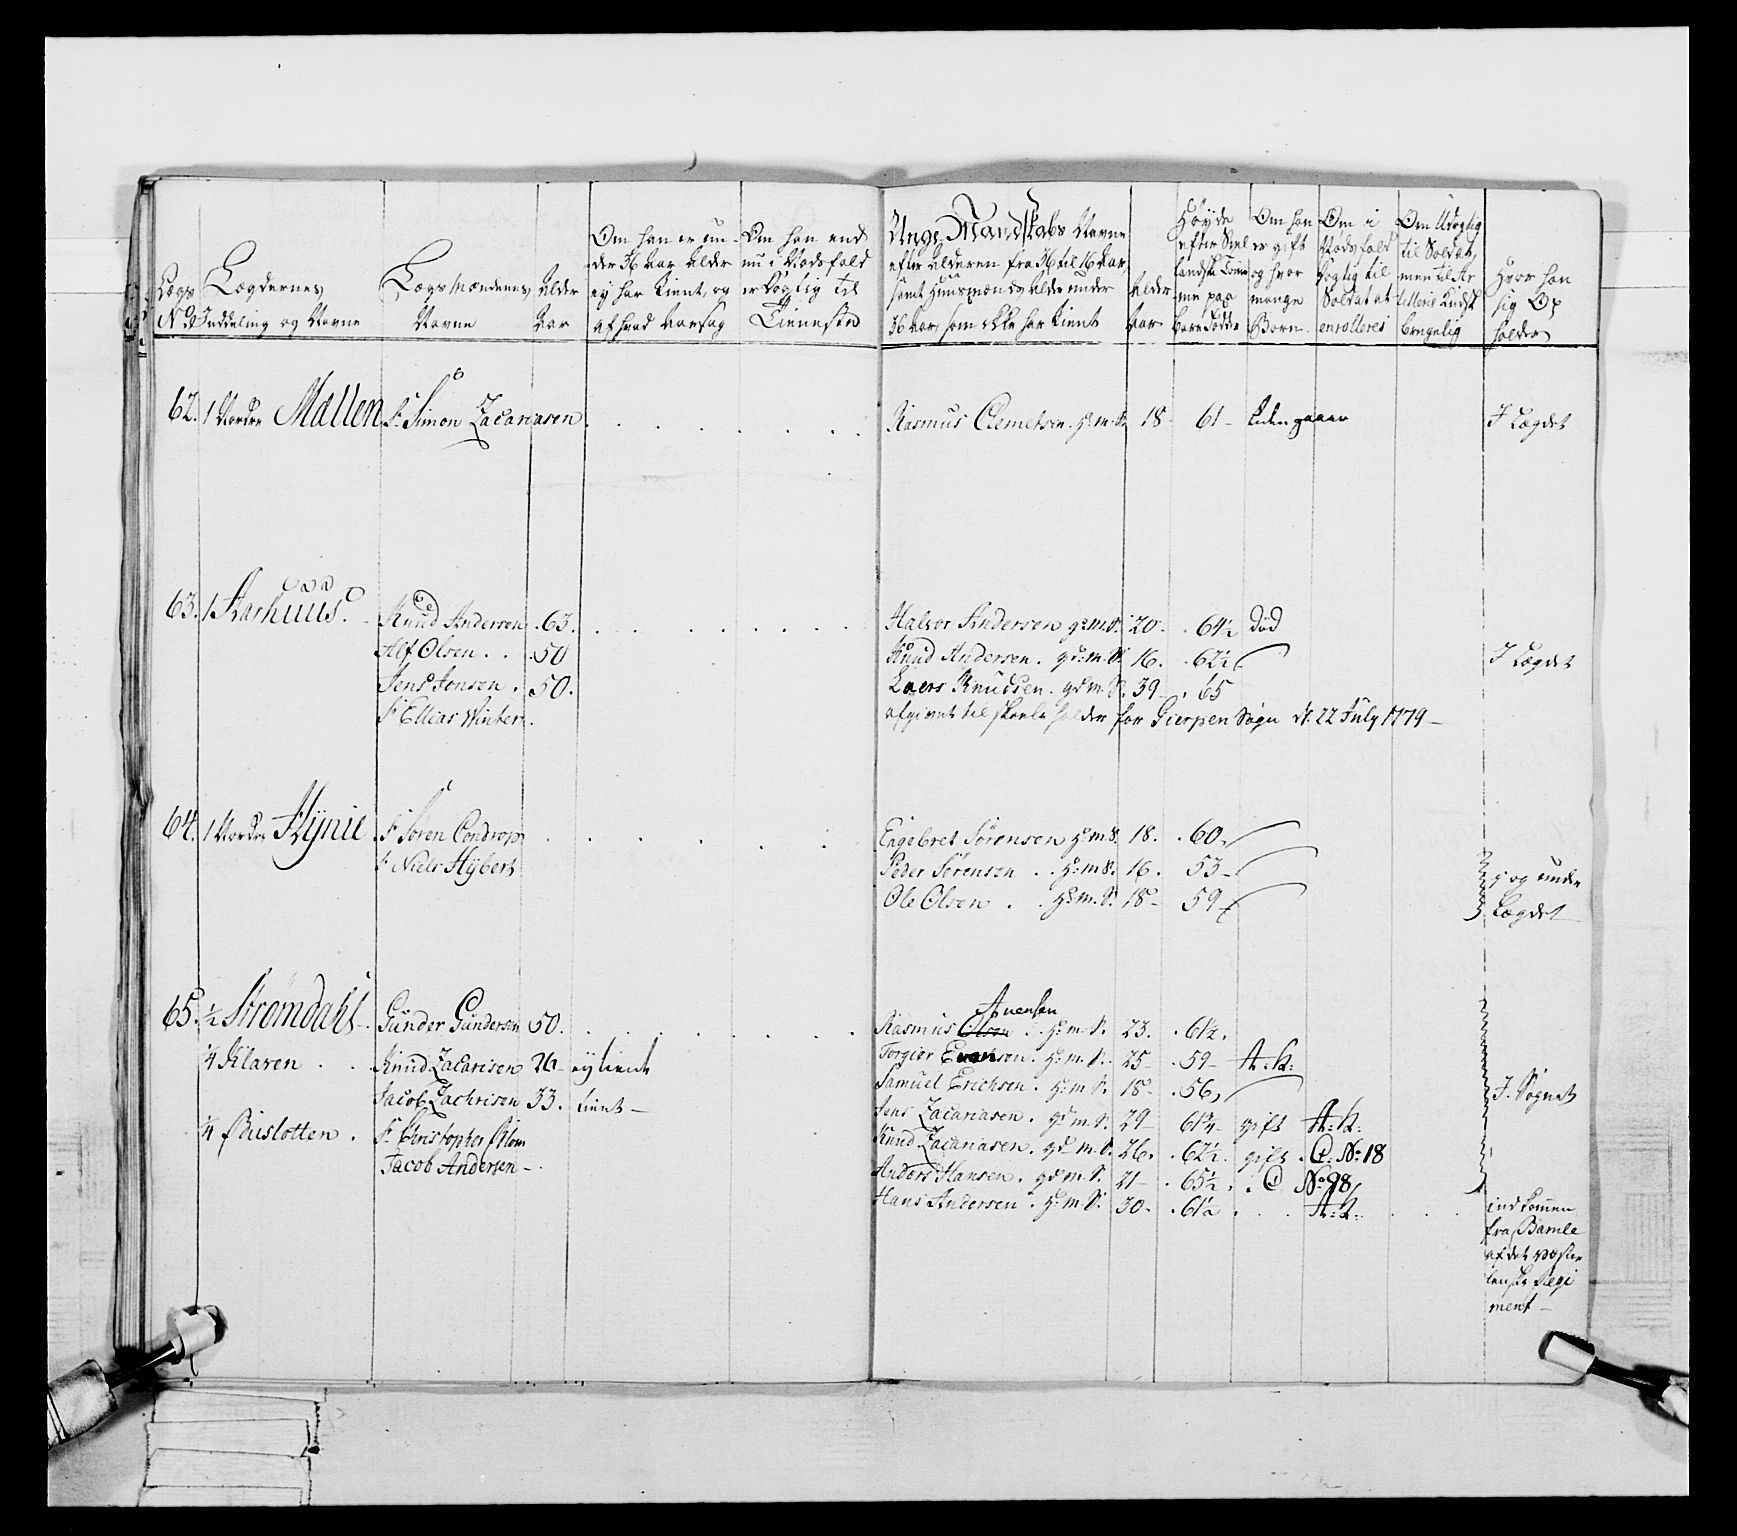 Lægs
No
Lægdernes
Inddeling og Navne
Lægsmændenes
Navne
Alder
Aar
Om han er un-
der 36 Aar Alder
ey har tient, og
af hvad Aarsag
Om han end
nu i Nødsfald
er Dygtig til
Tienesten
Unge Mandskabs Navne
efter Alderen fra 36 til 16 Aar
samt Huusmænd og Alde under
36 Aar, som ikke har tient
Alder
Aar
Høyde
efter Siel
landske Tom̄e
me paa
bare Fødder
Om han
er gift
og hvor
mange
Børn
Om i
Nødsfald
Dygtig til
Soldat at
enrolleres
Om Udygtig
til Soldat,
men til Ar
tillerie Kudsk
brugelig
Hvor han
sig Op
holder
62. 1 Nordre Mællen S. Simon Zacariasen Rasmus Clemetsen. H: m: S. 18 61 - Liden I Lægdet
63. 1 Aarhuus. Knud Andersen 63. Halvor Andersen g: m: S. 20. 64½ død
Alf Olsen . . 50 Knud Andersen. gd: m: S. 16. 62½ I Lægdet
Jens Jonsen . 50. Laers Knudsen. gd: m: S. 39 - 65
S. Ellias Winter. afgivet til skoele holder for Gierpen Sogn d. 22 July 1779 -
64. 1 Nordre Klynie S. Soren Condrop Engebret Sørensen H: m: S. 18. 60.
S. Niels Hybert Peder Sørensen . . H: m: S. 16. 53 - og under
Ole Olsen . . H: m: S. 18 - 59 - Lægdet
65. ½ Strømdahl - Gunder Gundersen 50. Rasmus Olsen Avensen . H: m: S. 23. 61½.
¼ Klaven . . Knud Zacarisen 26 - ey tient Torgier Evensen. H: m: S. 25 - 59 - A: K:
Jacob Zachrisen 33. tient - Samuel Erichsen. H: m: S. 18. 56, I Sognet
¼ Buslotten . S. Christopher Blom Jens Zacariasen. gd: m: S. 29 61¾ - gift A: K:
Jacob Andersen - Knud Zacariasen. gd: m: S. 26. 62½. gift C: No 18
Anders Hansen. gd: m: S. 21 - 65½. C No 98
Hans Andersen. H: m: S. 30. 61½ A: K: . . indkom̄en
fra Bamle
af det Vester
lenske Regi
ment -